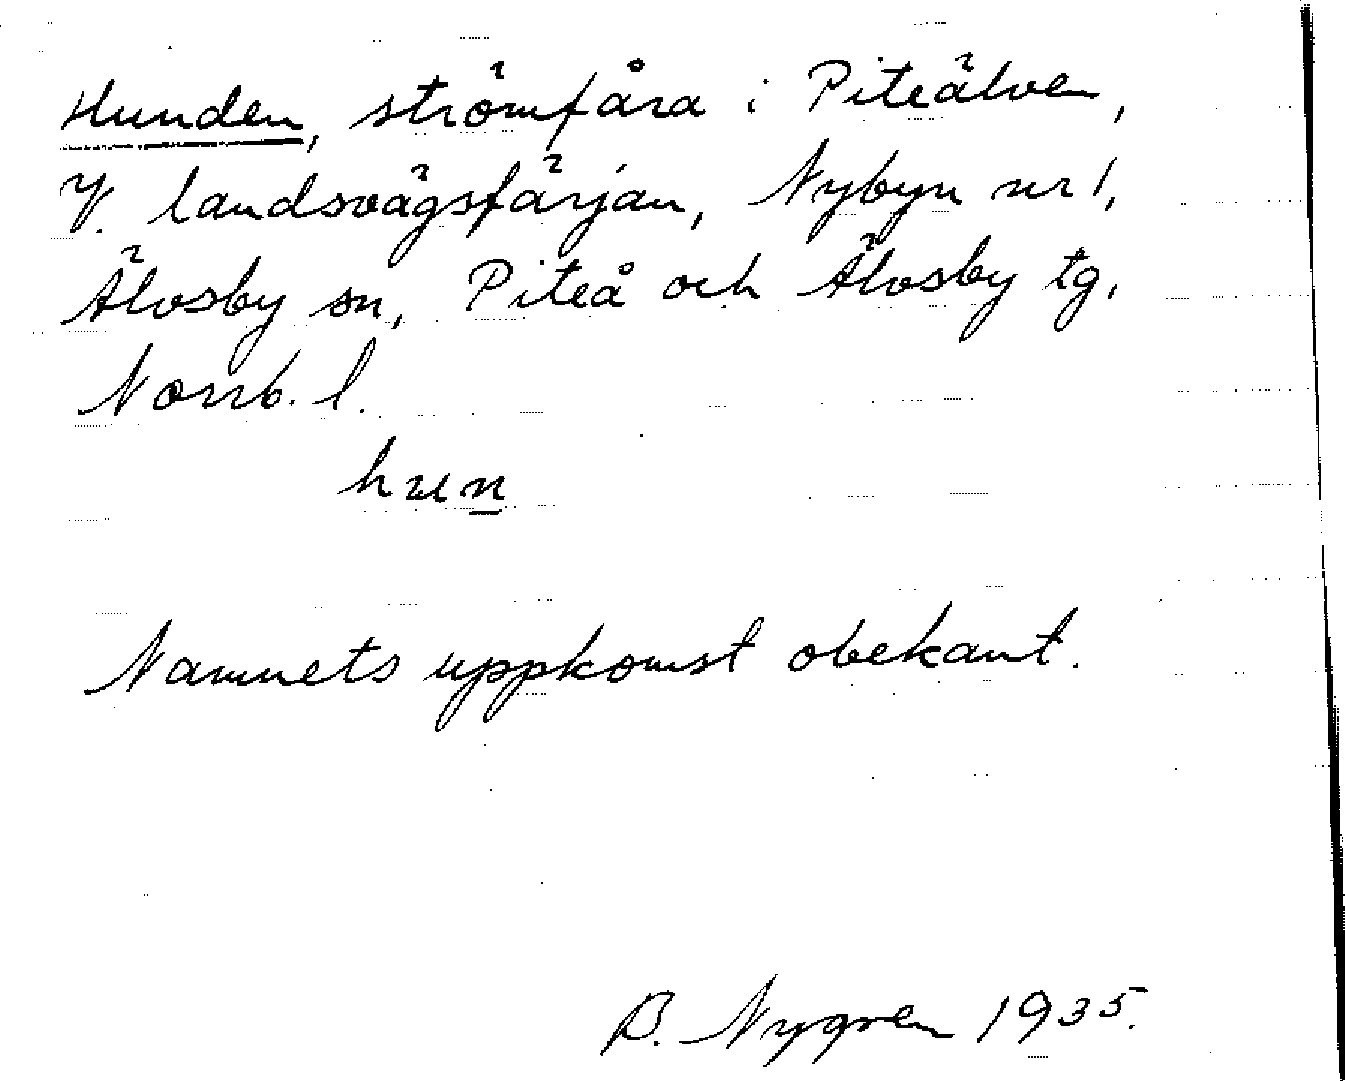 Hunden, strömfåra i Piteälven,
V. landsvägsfärjan, Nybyn nr 1,
Älvsby sn, Piteå och Älvsby tg.
Norrb. l.
hun
Namnets uppkomst obekant.
B. Nygren 1935.